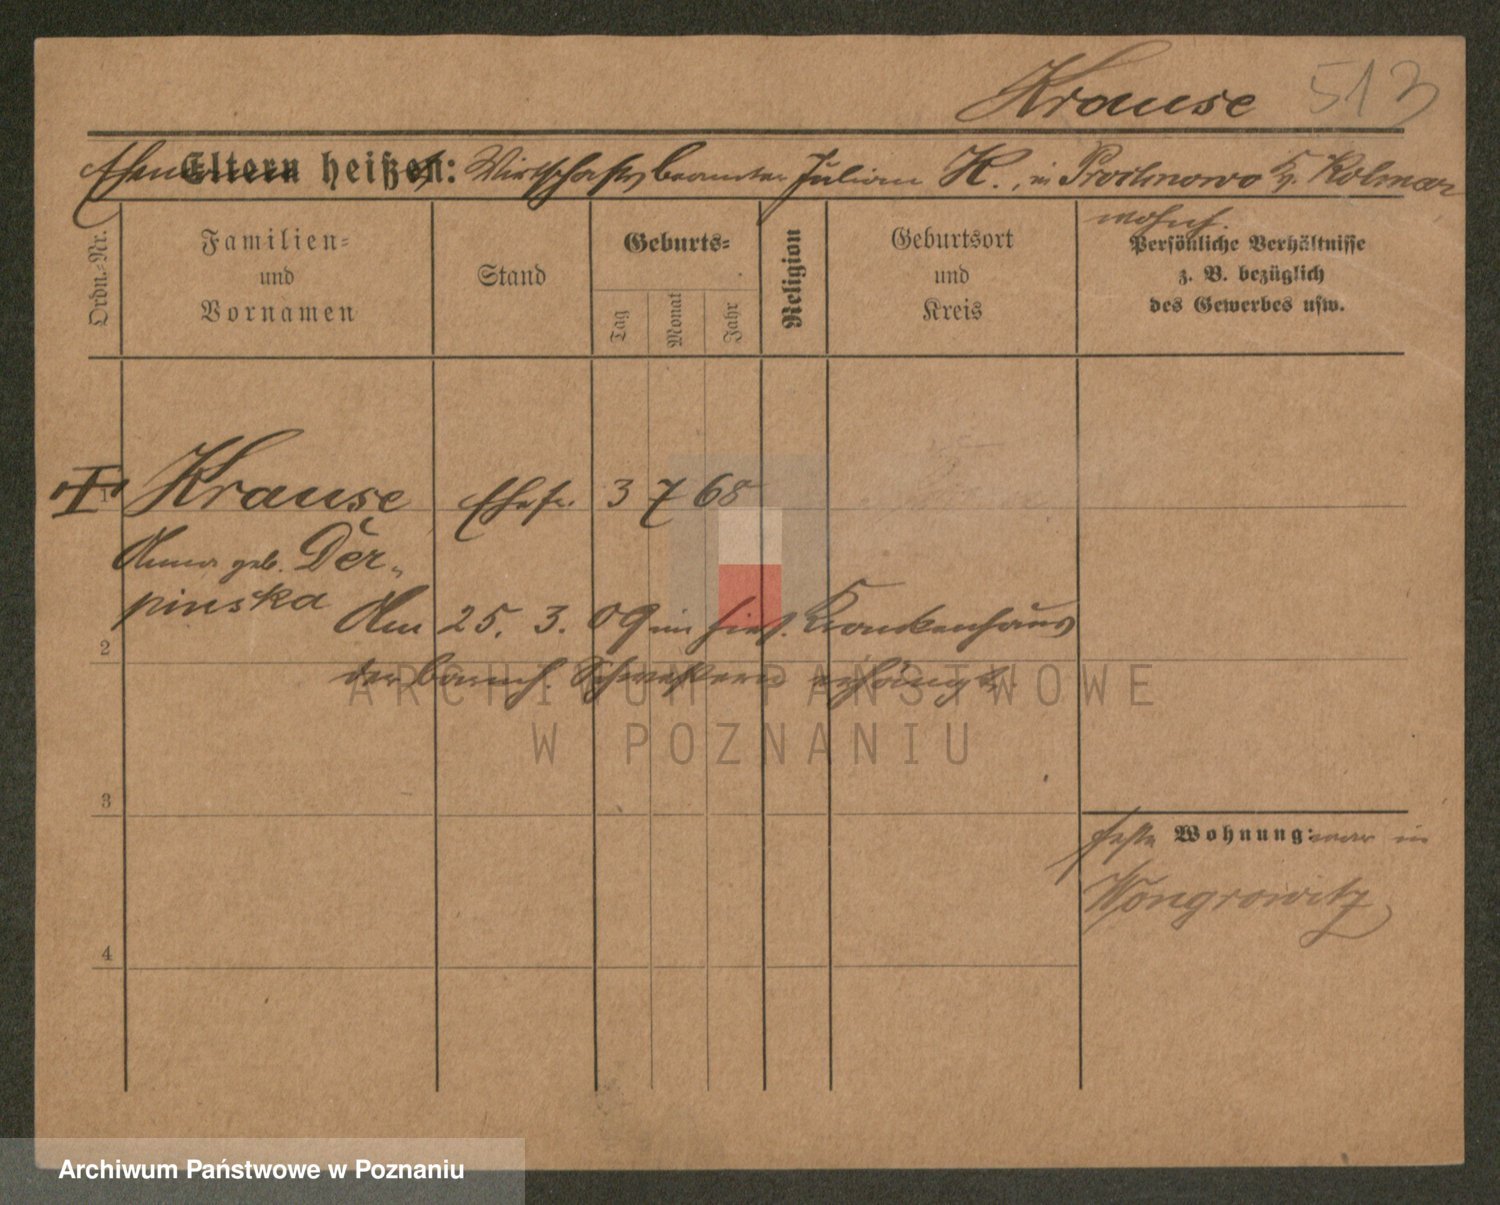 Krause 513
Eltern heißen: Wirtschaftsbeamter Julian K., in Prochnowo K. Kolmar
wohnh.
Ordn.-Nr.
Familien-
und
Vornamen
Stand
Geburts-
Tag
Monat
Jahr
Religion
Geburtsort
und
Kreis
Persönliche Verhältnisse
z. B. bezüglich
des Gewerbes usw.
1 Krause Ehefr. 3 7 68
Anna geb. Dër-
pinska
Am 25. 3. 09 im hies. Krankenhaus
2
der barmh. Schwestern erhängt.
ARCHIWUM PAŃSTWOWE
W POZNANIU
3
feste Wohnung: war in
Wongrowitz
4
Archiwum Państwowe w Poznaniu